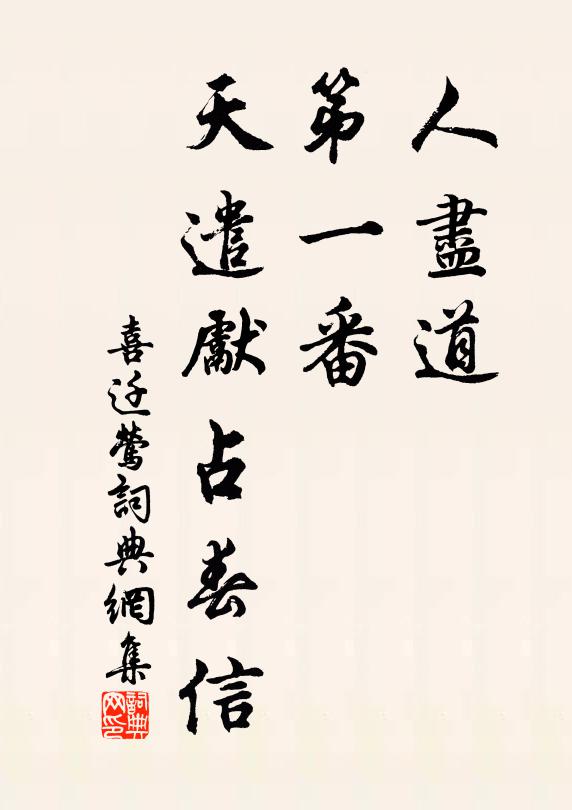 人盡道
第一番
天遣獻占春信
喜迁鶯詞典網集
詞典
网印